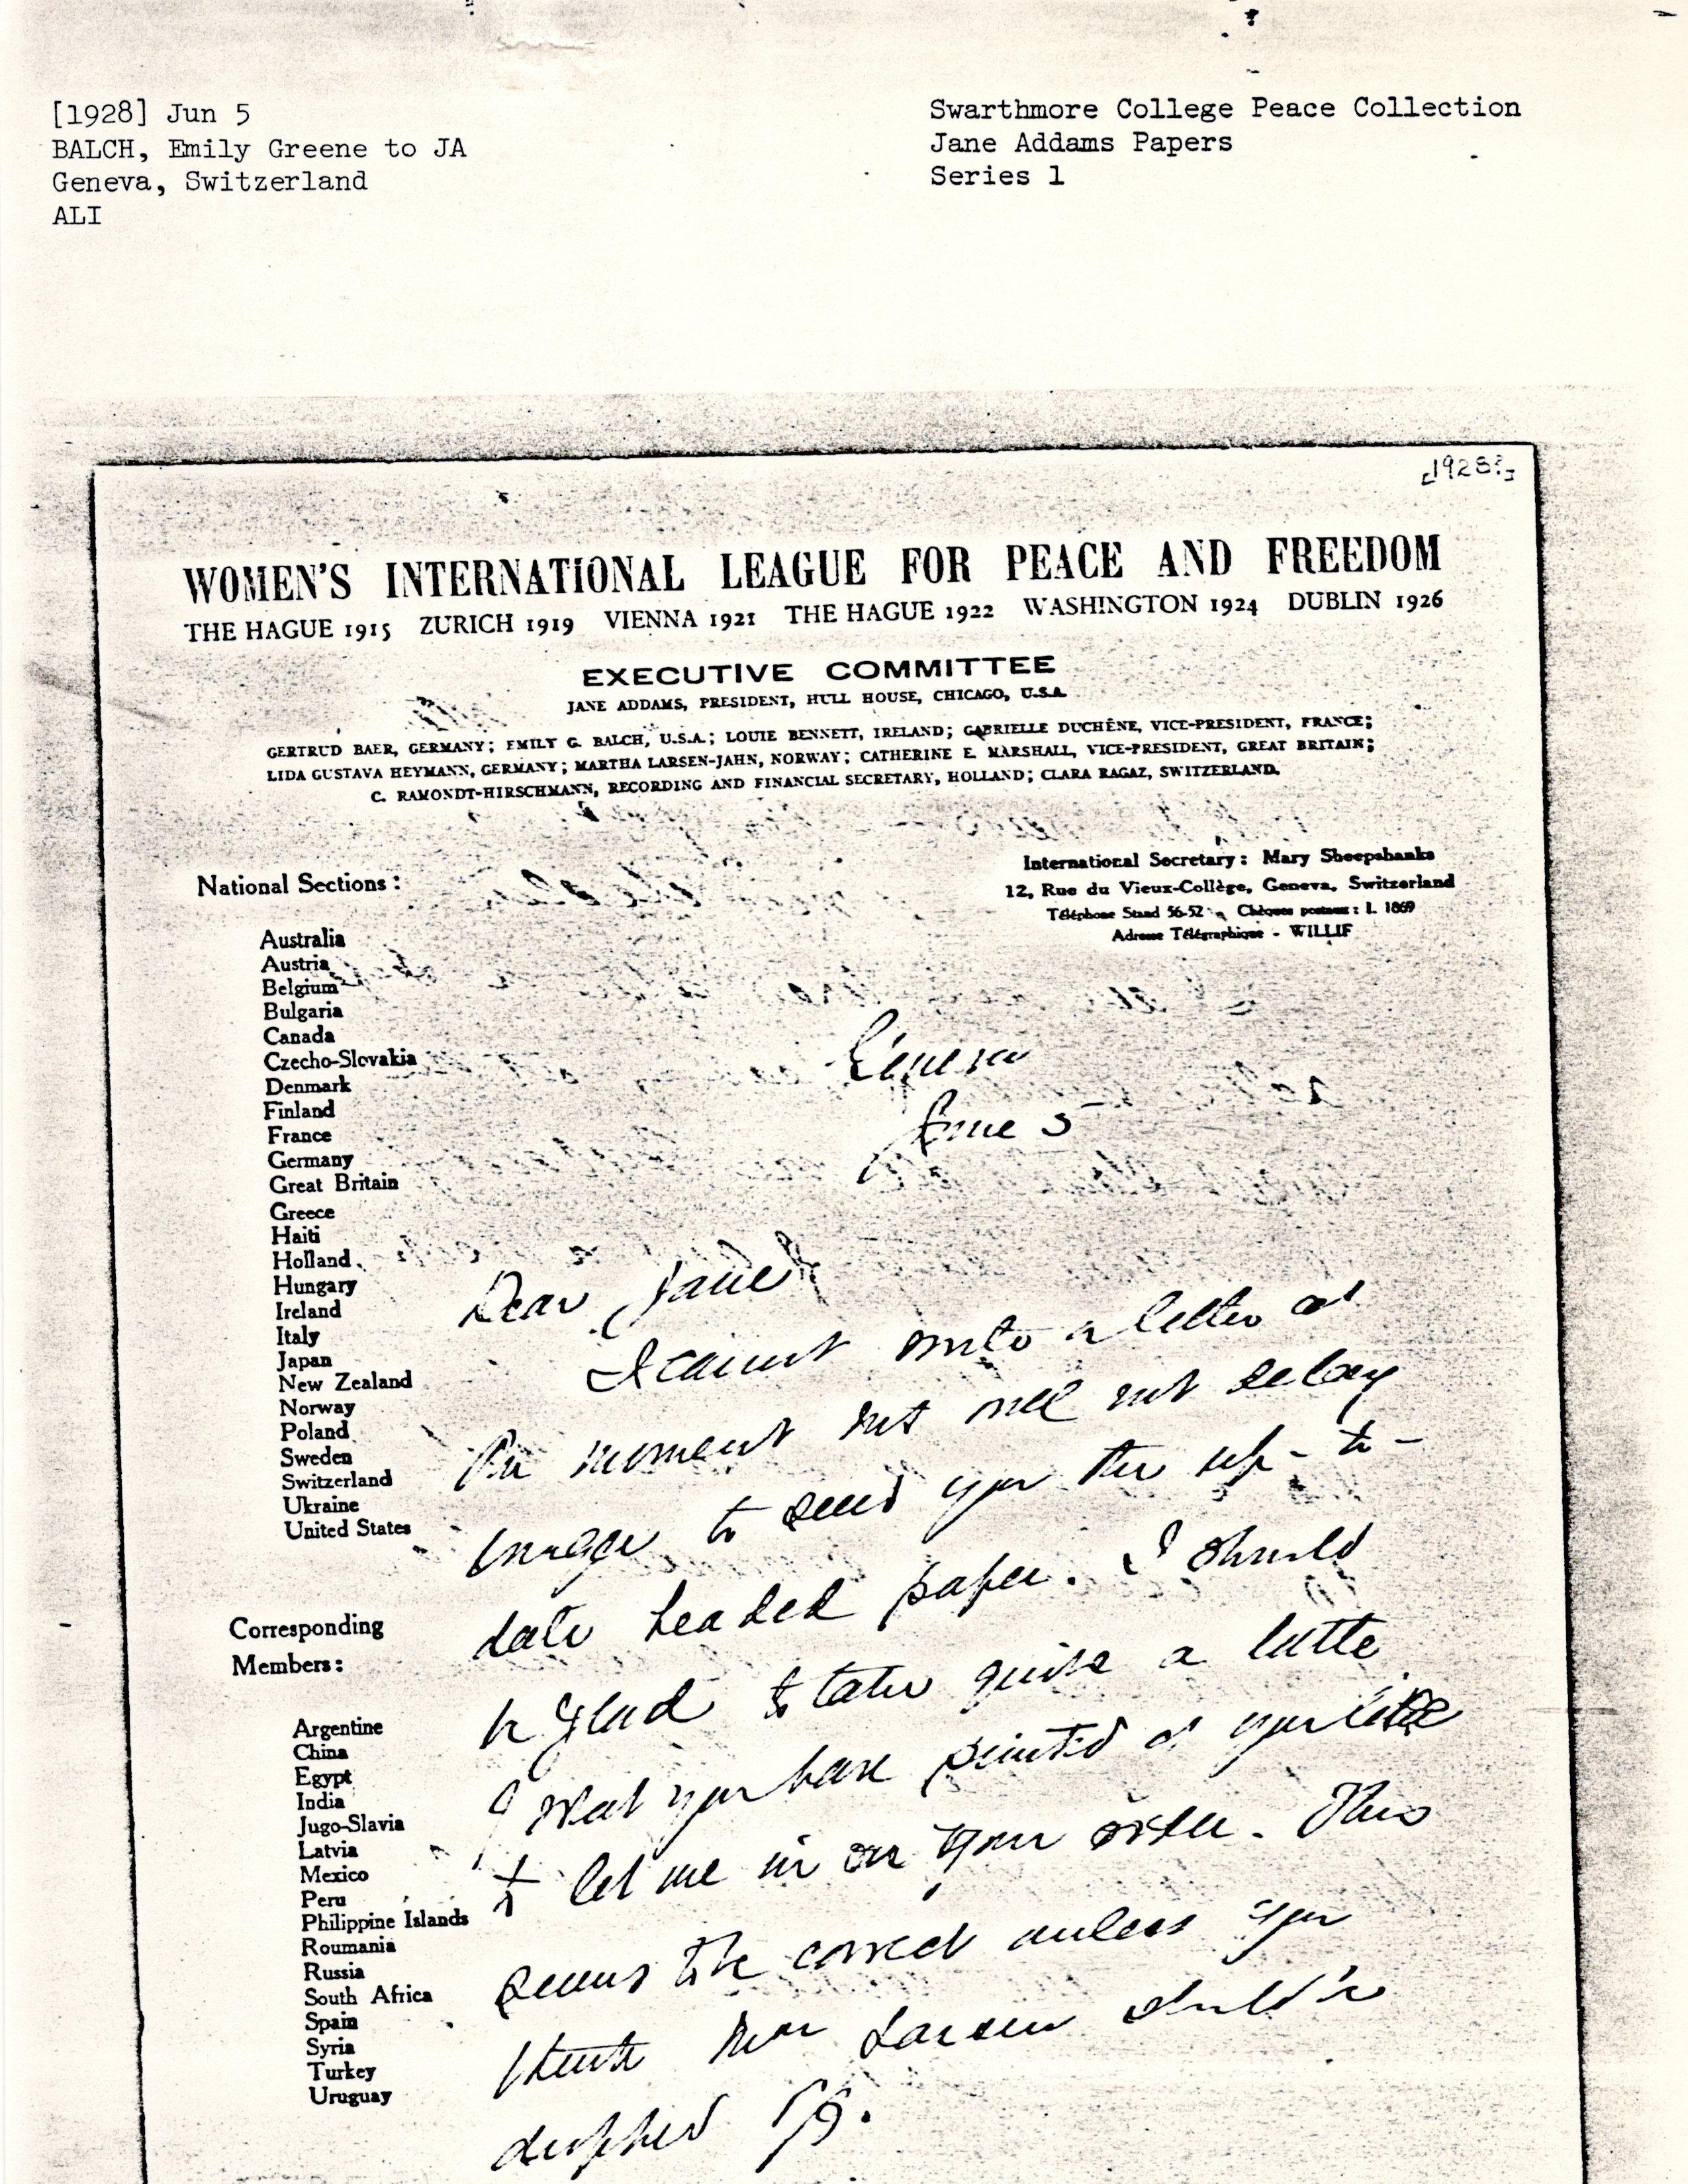 [1928] Jun 5
BALCH, Emily Greene to JA
Geneva, Switzerland
ALI
Swarthmore College Peace Collection
Jane Addams Papers
Series 1
[1928?]
WOMEN'S INTERNATIONAL LEAGUE FOR PEACE AND FREEDOM
THE HAGUE 1915 ZURICH 1919 VIENNA 1921 THE HAGUE 1922 WASHINGTON 1924 DUBLIN 1926
EXECUTIVE COMMITTEE
JANE ADDAMS, PRESIDENT, HULL HOUSE, CHICAGO, U.S.A.
GERTRUD BAER, GERMANY; EMILY G. BALCH, U.S.A.; LOUIE BENNETT, IRELAND; GABRIELLE DUCHÊNE, VICE-PRESIDENT, FRANCE;
LIDA GUSTAVA HEYMANN, GERMANY; MARTHA LARSEN-JAHN, NORWAY; CATHERINE E. MARSHALL, VICE-PRESIDENT, GREAT BRITAIN;
C. RAMONDT-HIRSCHMANN, RECORDING AND FINANCIAL SECRETARY, HOLLAND; CLARA RAGAZ, SWITZERLAND.
International Secretary: Mary Sheepshanks
12, Rue du Vieux-Collège, Geneva, Switzerland
Téléphone Stand 56-52 - Chèques postaux: I. 1869
Adresse Télégraphique - WILLIF
National Sections:
Australia
Austria
Belgium
Bulgaria
Canada
Czecho-Slovakia
Denmark
Finland
France
Germany
Great Britain
Greece
Haiti
Holland
Hungary
Ireland
Italy
Japan
New Zealand
Norway
Poland
Sweden
Switzerland
Ukraine
United States
Corresponding
Members:
Argentine
China
Egypt
India
Jugo-Slavia
Latvia
Mexico
Peru
Philippine Islands
Roumania
Russia
South Africa
Spain
Syria
Turkey
Uruguay
Geneva
June 5
Dear Jane
I cannot write a letter at
the moment but will not delay
to send you the up-to-
date headed paper. I should
be glad to take quite a little
of what you have printed if you like
& let me in on your order. This
seems to be correct unless you
think Mrs Larsen should be
dropped